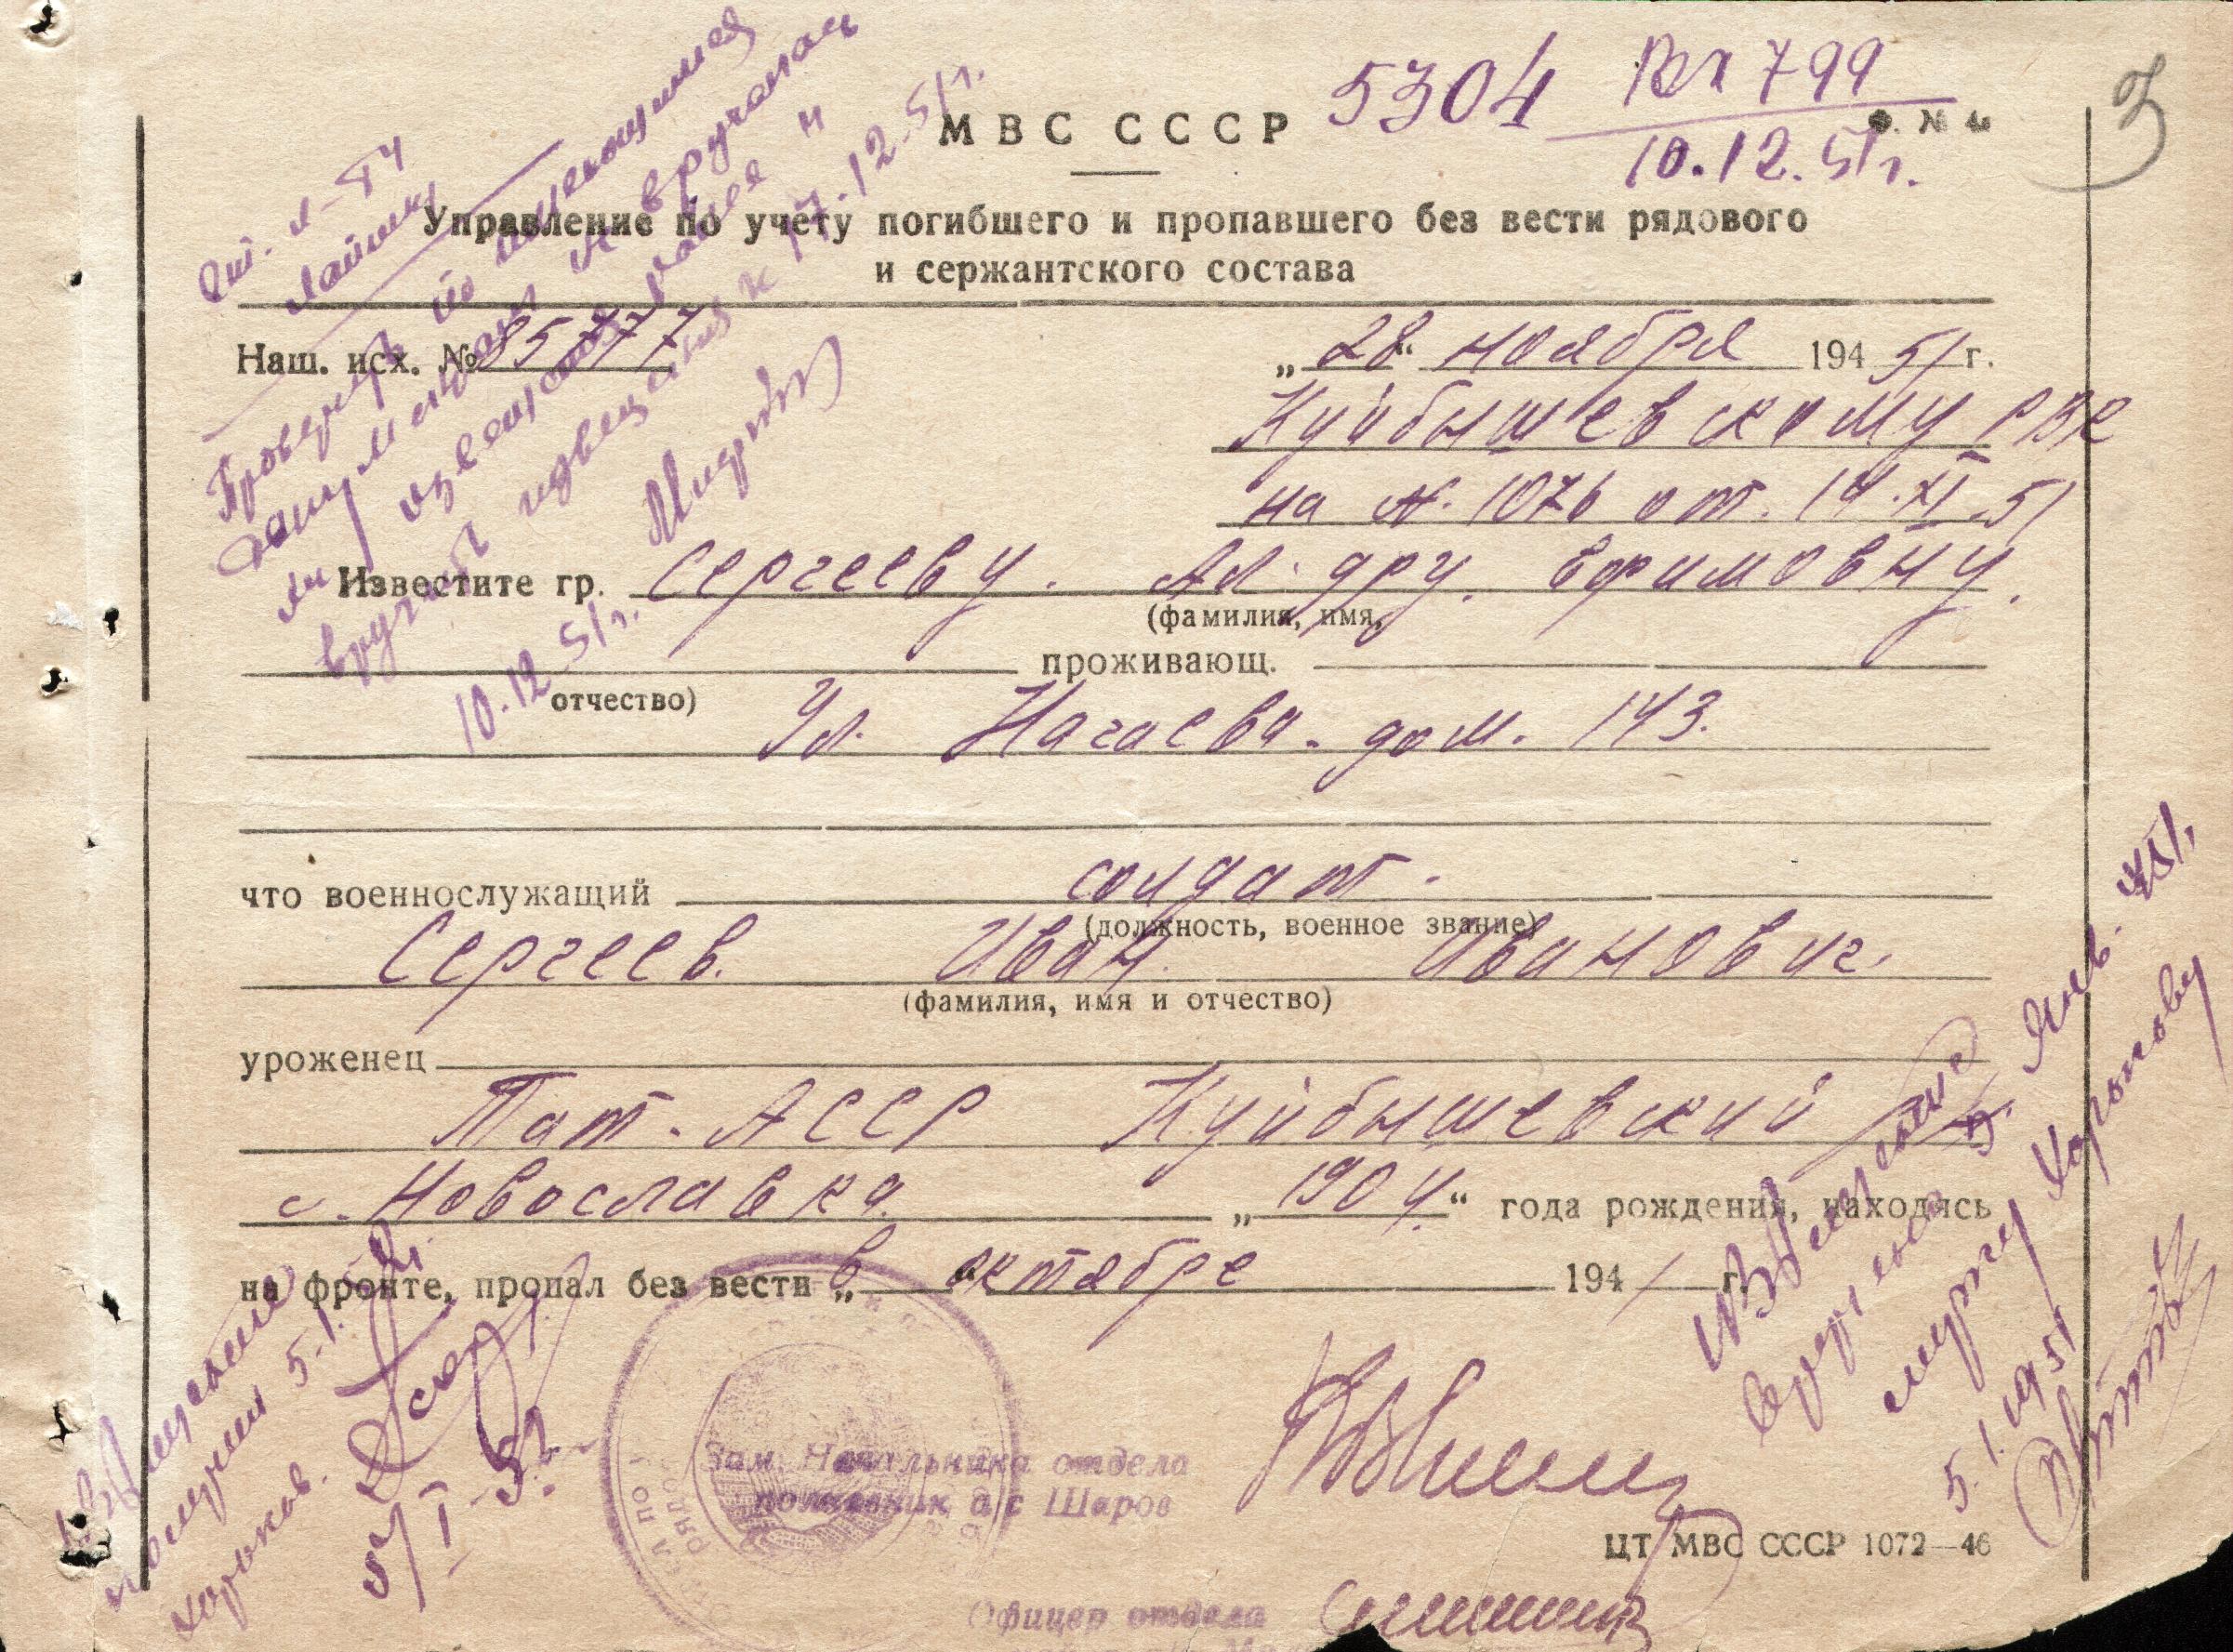 3
МВС СССР
5304 Вх 799
10.12.51г.
Ф. № 4
Управление по учету погибшего и пропавшего без вести рядового
и сержантского состава
Наш. исх. № 85777
„28“ ноября 194 51 г.
Куйбышевскому РВК
на №. 1076 от. 14.XI.51
Известите гр. Сергееву. Ал-дру. Ефимовну.
(фамилия, имя,
проживающ.
отчество)
Ул. Нагаева. дом. 143.
что военнослужащий солдат.
(должность, военное звание)
Сергеев. Иван. Иванович.
(фамилия, имя и отчество)
уроженец
Тат. АССР Куйбышевский
с. Новославка. „1904.“ года рождения, находясь
на фронте, пропал без вести „в “ октябре 1941 г.
Зам. Начальника отдела
полковник а/с Шаров
ЦТ МВС СССР 1072—46
Офицер отдела
Проверить по
извещения к 17.12.51г.
10.12.51г.
Извещение
получил 5.1.
Извещение
5.1.1951